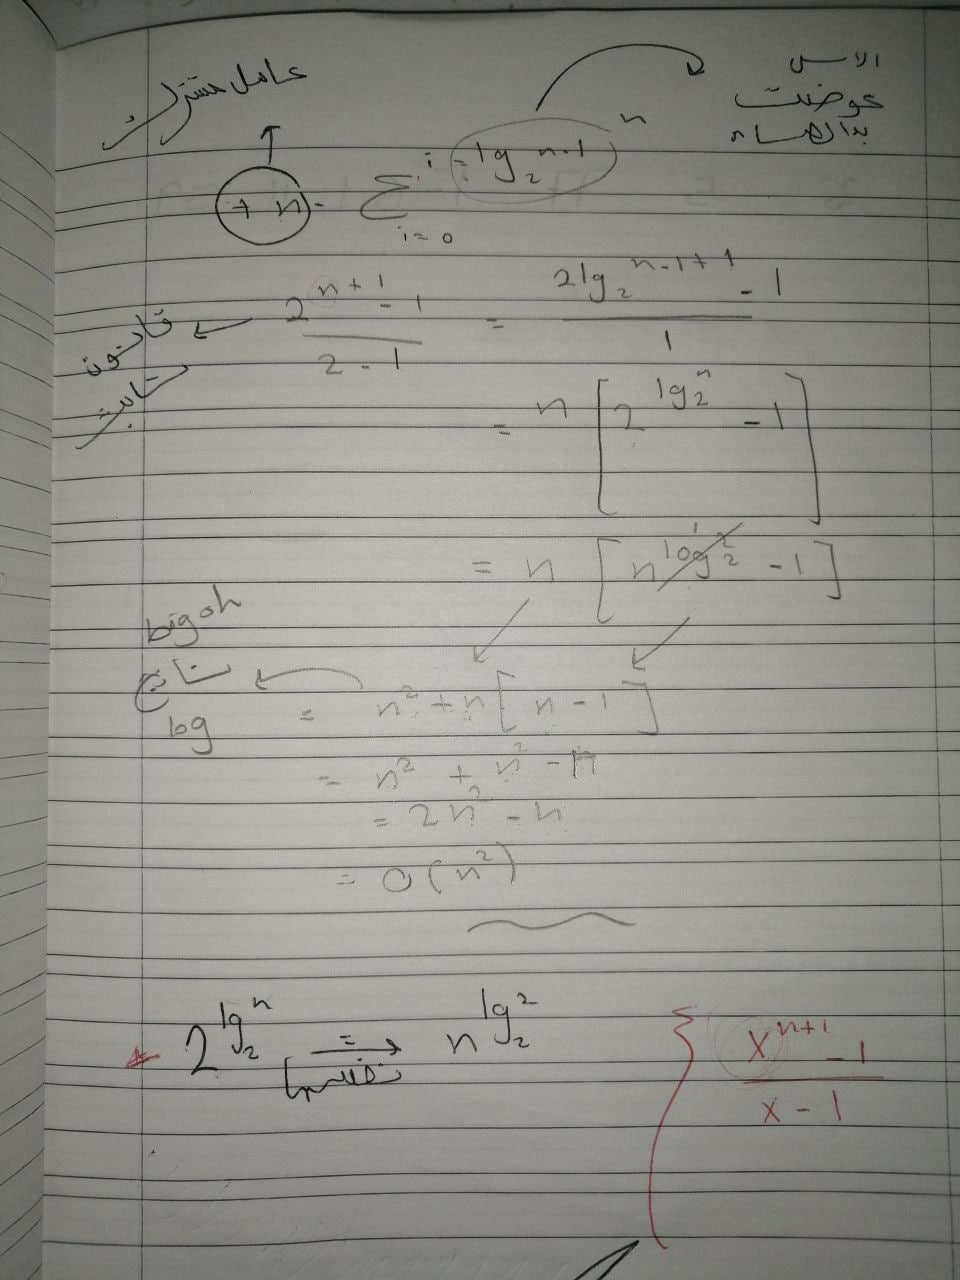 عامل مشترك
الاس
عوضت
بدالهساه
+ n - Σ i = lg₂ n-1 n
i = 0
قانون ثابت ← 2^(n+1) - 1 / 2 - 1 = 2lg₂^(n-1+1) - 1 / 1
= n [ 2^(lg₂ n) - 1 ]
= n [ n^(log₂ 2) - 1 ] 1
big oh
ناتج
log
= n² + n [ n - 1 ]
= n² + n² - n
= 2n² - n
= O(n²)
2^(lg₂ n) = نفسها → n^(lg₂ 2)
x^(n+1) - 1 / x - 1